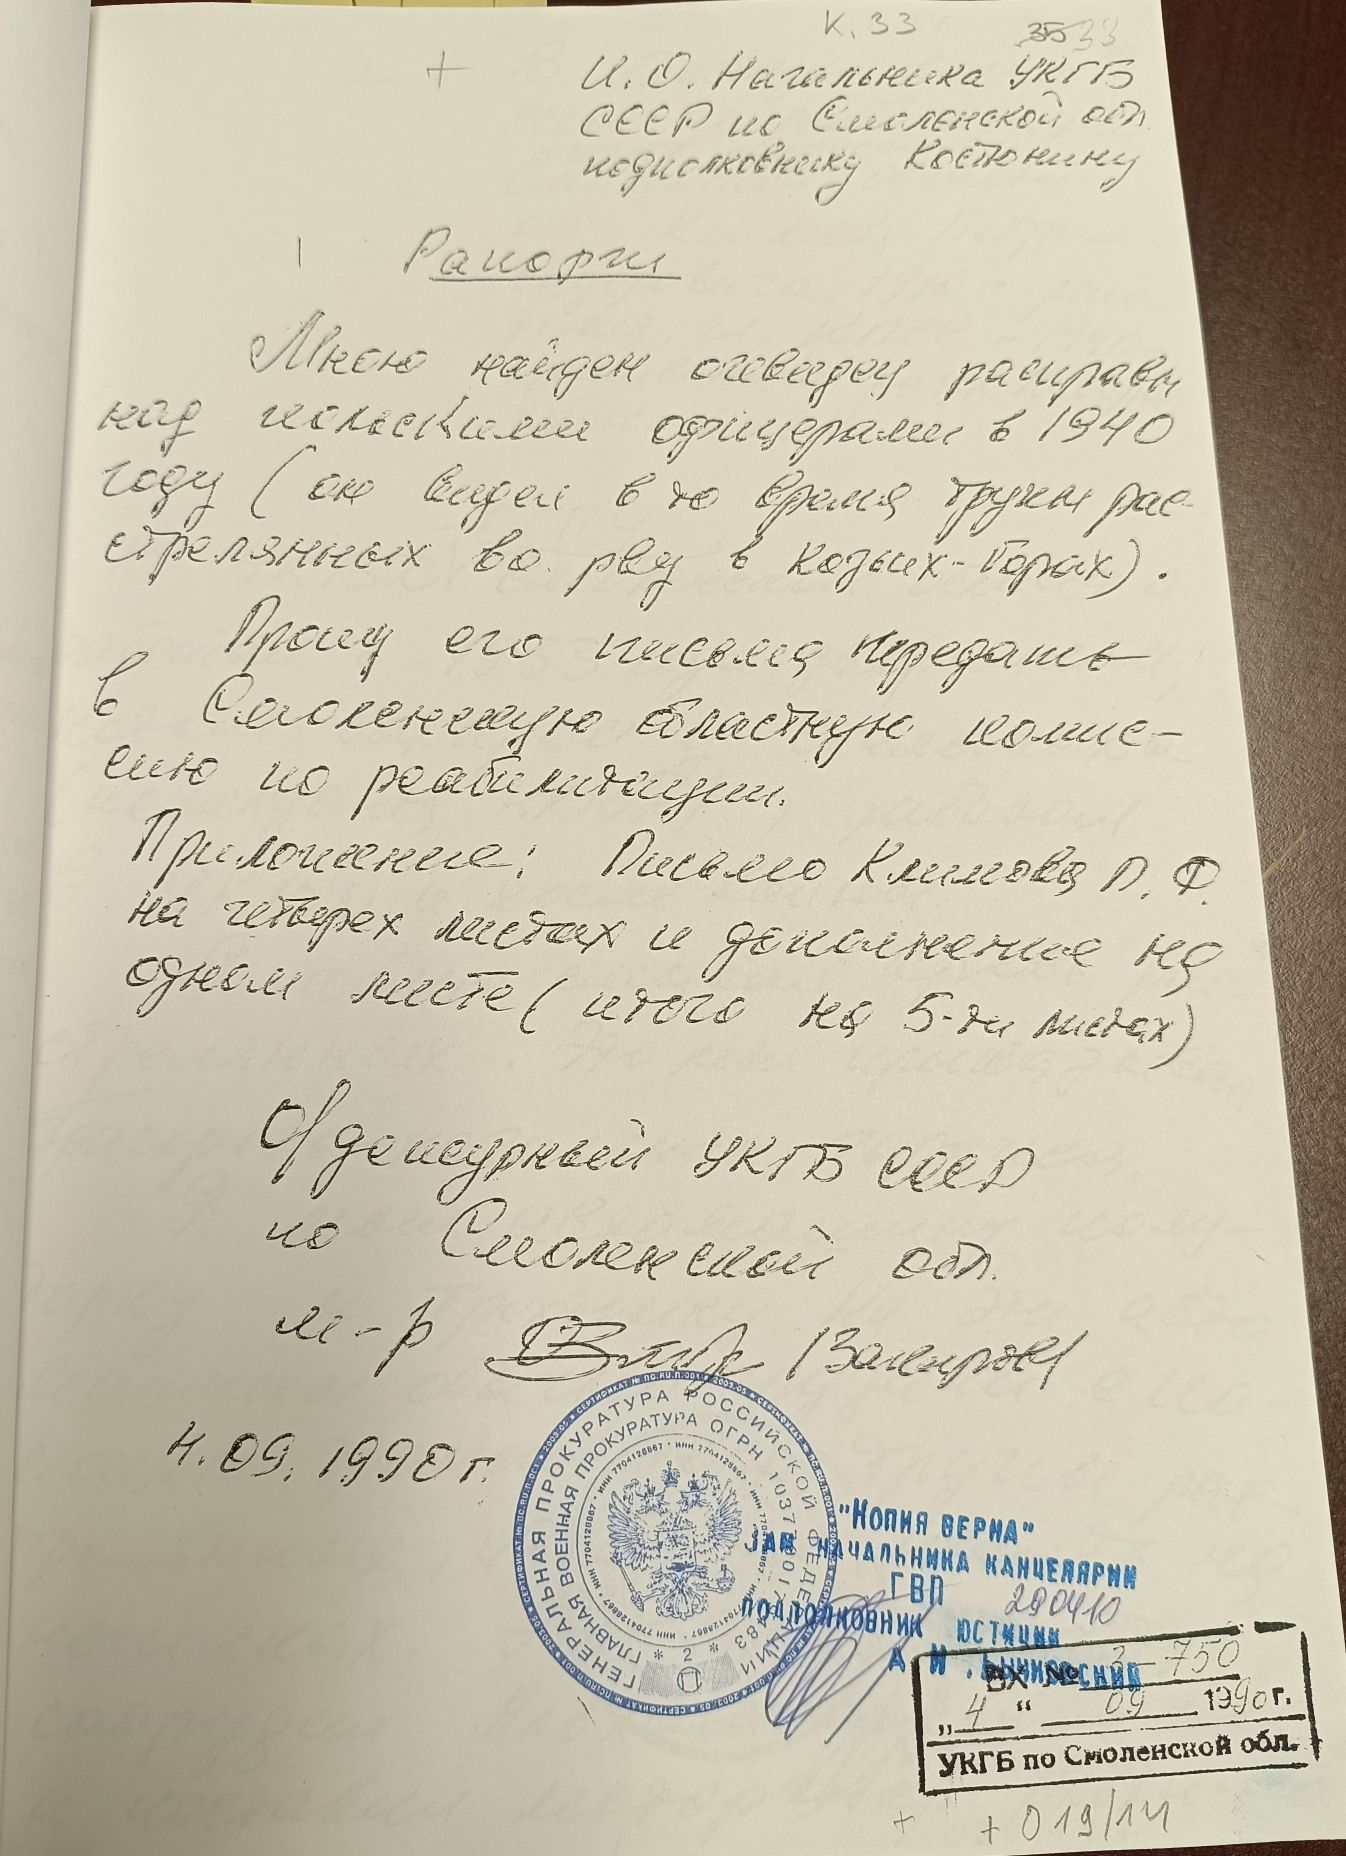 К. 33 35 33
И. О. Начальника УКГБ
СССР по Смоленской обл.
подполковнику Костюнину
Рапорт
Мною найден очевидец расправы
над польскими офицерами в 1940
году (он видел в то время трупы рас-
стрелянных во рву в Козьих-Горах).
Прошу его письма передать
в Смоленскую областную комис-
сию по реабилитации.
Приложение: Письмо Климова П. Ф.
на четырех листах и дополнение на
одном листе (итого на 5-ти листах)
О/дежурный УКГБ СССР
по Смоленской обл.
м-р
4.09.1990 г.
ГЕНЕРАЛЬНАЯ ПРОКУРАТУРА РОССИЙСКОЙ ФЕДЕРАЦИИ
ГЛАВНАЯ ВОЕННАЯ ПРОКУРАТУРА ОГРН
ИНН 7704128867
* 2 *
"КОПИЯ ВЕРНА"
ЗАМ НАЧАЛЬНИКА КАНЦЕЛЯРИИ
ГВП
290410
ПОДПОЛКОВНИК ЮСТИЦИИ
ВХ № 3-750
„4“ 09 1990 г.
УКГБ по Смоленской обл.
+ + 019/14